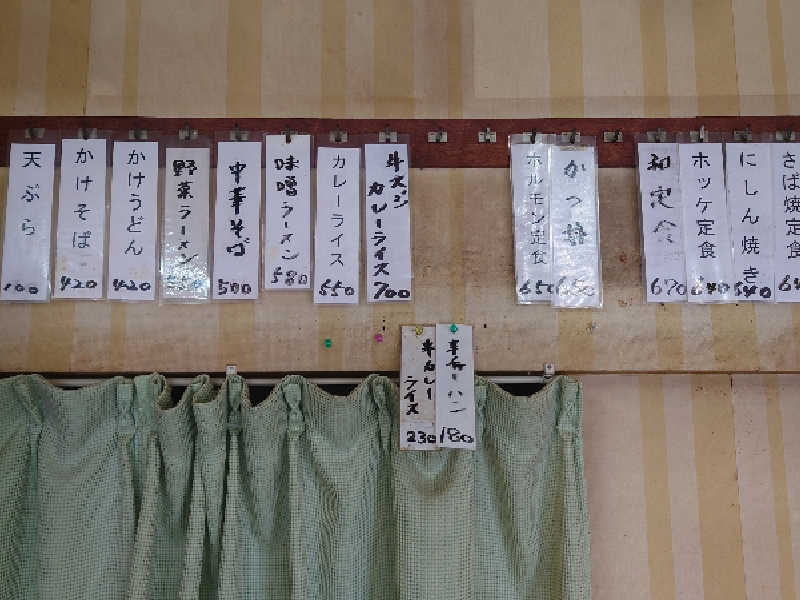 天ぷら
100
かけそば
420
かけうどん
420
野菜ラーメン
中華そば
500
味噌ラーメン
580
カレーライス
550
カレーライス
700
ホルモン定食
650
かつ
定食
670
ホッケ定食
640
にしん焼き
640
さば焼定食
カレー
ライス
230
180